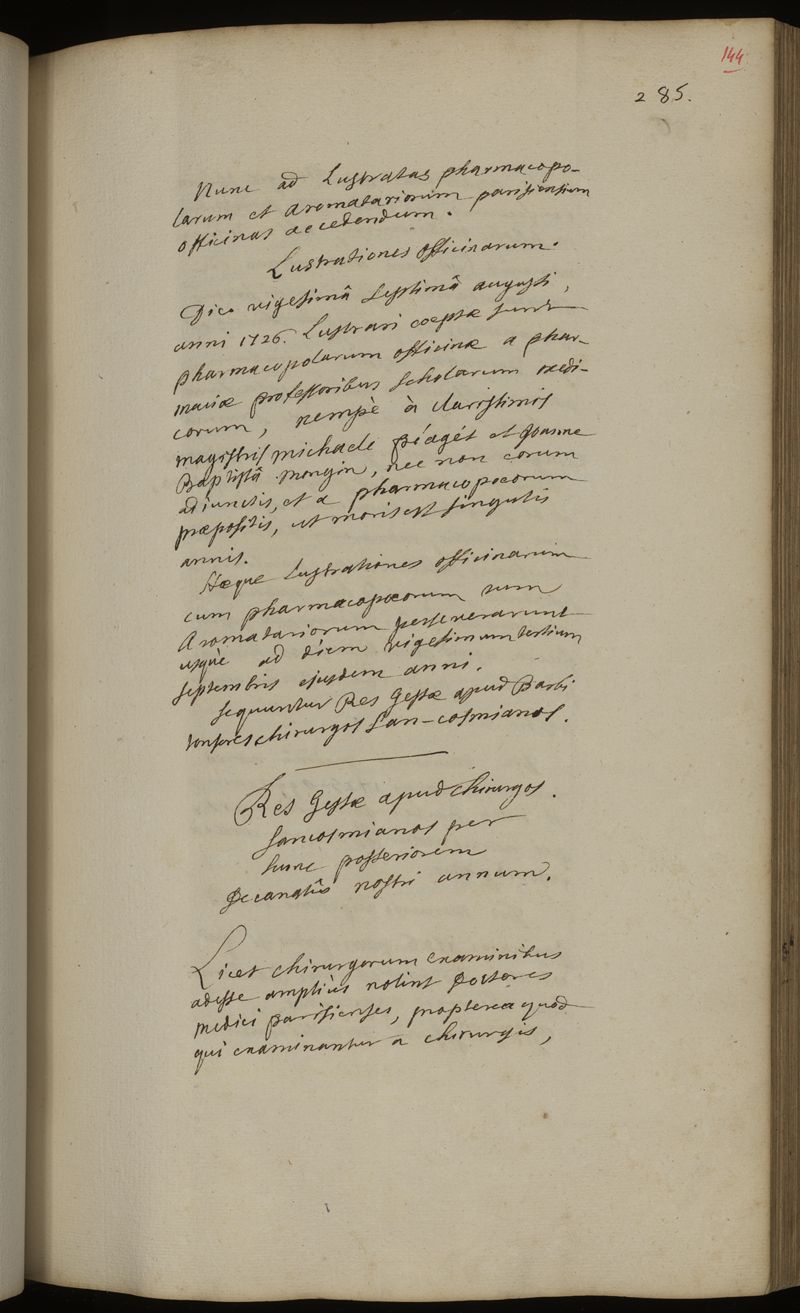 144
285.
Nunc ad Lustratas pharmacopo-
larum et Aromatariorum parisiensium
officinas accedendum.
Lustrationes officinarum.
Die vigesimâ septimâ augusti,
anni 1726. Lustrari coeptæ sunt
pharmacopolarum officinæ a phar-
maciæ professoribus scholarum medi-
corum, nempè à clarissimis
magistris michaele péagét et Joanne
Baptistâ mongin, nec non eorum
adjunctis, et a pharmacopoeorum
præpositis, ut moris est singulis
annis.
Hæque Lustrationes officinarum
cum pharmacopoeorum tum
Aromatariorum perseverarunt
usquè ad diem vigesimum tertium
septembris ejusdem anni.
sequuntur Res Gestæ apud Barbi
tonsores chirurgos San-cosmianos.
Res Gestæ apud chirurgos.
sancosmianos per
hunc posteriorem
Decanatûs nostri annum.
Licet chirurgorum examinibus
adesse ampliùs nolint Doctores
medici parisienses, propterea quod
qui examinantur a chirurgis,